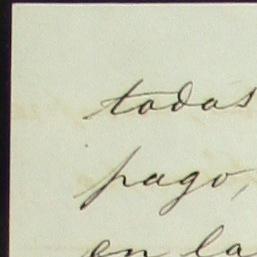 todas
pago,
en la